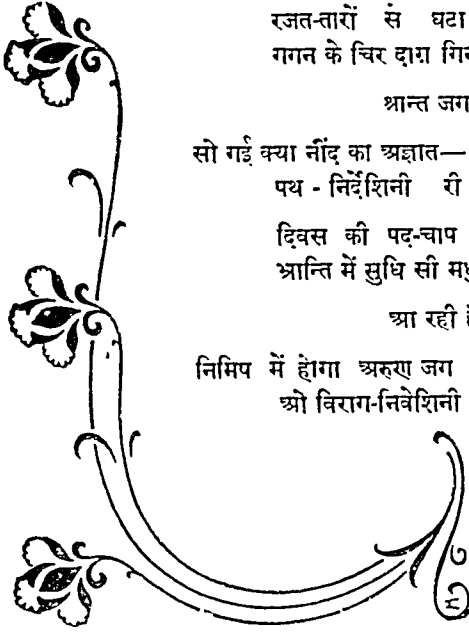 रजत-तारों से घटा
गगन के चिर दाग़
श्रान्त जग
सो गई क्या नींद का अज्ञात—
पथ - निर्देशिनी री
दिवस की पद-चाप
श्रान्ति में सुधि सी
आ रही
निमिष में होगा अरुण जग
ओ विराग-निवेशिनी